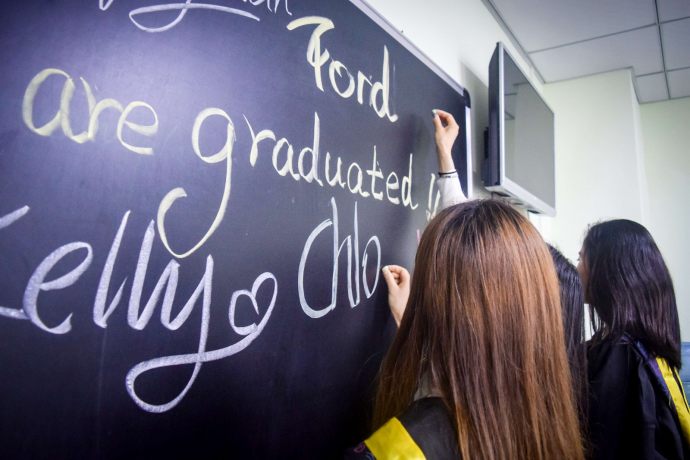 Ford
are graduated !
Kelly Chlo